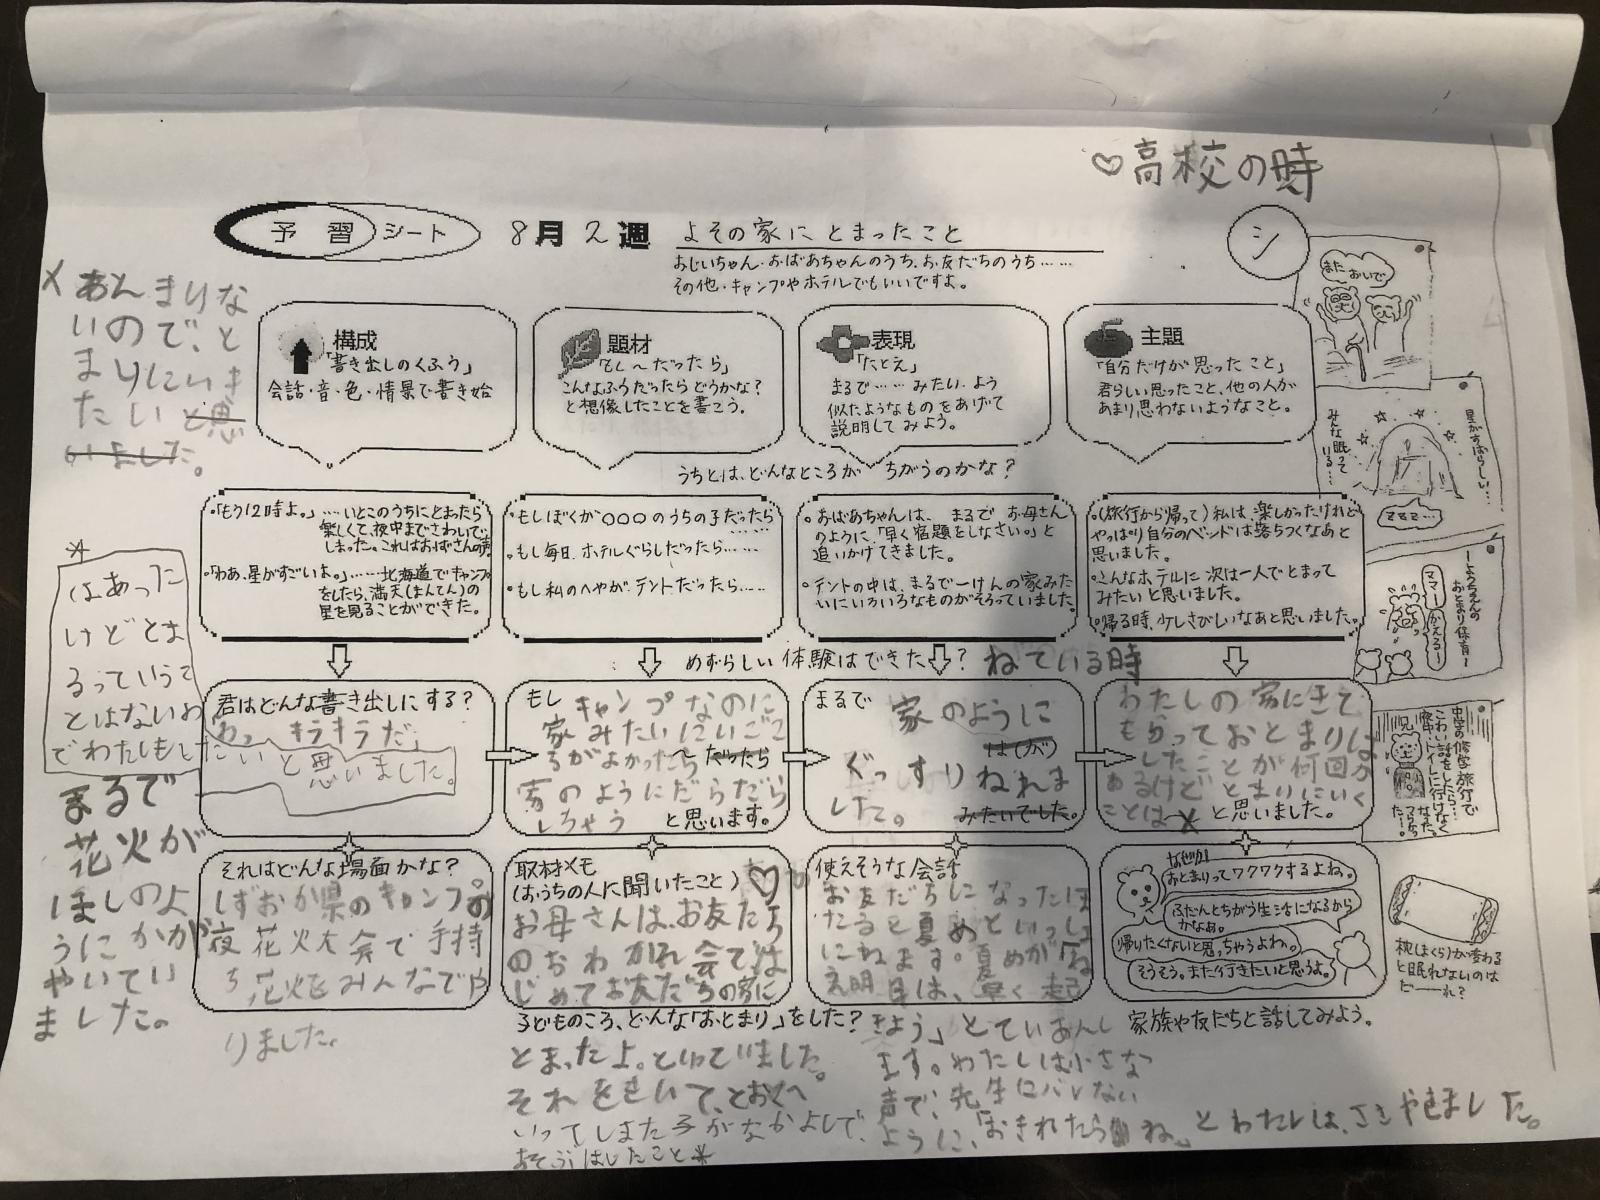 ♡高校の時
予習シート 8月2週 よその家にとまったこと
おじいちゃん・おばあちゃんのうち、お友だちのうち……
その他・キャンプやホテルでもいいですよ。
シ
構成
「書き出しのくふう」
会話・音・色・情景で書き始
題材
「もし〜だったら」
こんなふうだったらどうかな?
と想像したことを書こう。
表現
「たとえ」
まるで……みたい、よう
似たようなものをあげて
説明してみよう。
主題
「自分だけが思ったこと」
君らしい思ったこと、他の人が
あまり思わないようなこと。
うちとは、どんなところがちがうのかな?
・「もう12時よ。」……いとこのうちにとまったら
楽しくて、夜中までさわいで
しまった。これはおばさんの声
・「わあ、星がすごいよ。」……北海道でキャンプ
をしたら、満天(まんてん)の
星を見ることができた。
・もしぼくが○○○のうちの子だったら
・もし毎日、ホテルぐらしだったら……
・もし私のへやが、テントだったら……
・おばあちゃんは、まるでお母さん
のように、「早く宿題をしなさい。」と
追いかけてきました。
・テントの中は、まるで一けんの家みた
いにいろいろなものがそろっていました。
・(旅行から帰って)私は、楽しかったけれど
やっぱり自分のベッドは落ちつくなあと
思いました。
・こんなホテルに次は一人でとまって
みたいと思いました。
・帰る時、少しさびしいなあと思いました。
めずらしい体験はできた?
ねている時
君はどんな書き出しにする?
「わっ キラキラだ」
もし キャンプなのに
家みたいにいごこ
ちがよかったら だったら
家のようにだらだら
しちゃう と思います。
まるで 家のように
は(が)
ぐっすりねれま
した。 みたいでした。
わたしの家にきて
もらっておとまりは
したことが何回か
あるけどとまりにいく
ことは× と思いました。
それはどんな場面かな?
しずおか県のキャンプの
夜花火大会で手持
ち花火をみんなでや
りました。
取材メモ
(おうちの人に聞いたこと)♡
お母さんは、お友だち
のおわかれ会では
じめてお友だちの家に
子どものころ、どんな「おとまり」をした?
とまったよ。といっていました。
それをきいて、とおくへ
いってしまた子がなかよしで、
おそぶはしたこと*
使えそうな会話
お友だちになったほ
たると夏めといっしょ
にねます。夏めが「ね
え明日は、早く起
きよう」とていあんし
ます。わたしは小さな
声で、先生にバレない
ように、「おきれたらね。」とわたしは、ささやきました。
なぜか
おとまりってワクワクするよね。
ふだんとちがう生活になるから
かなぁ。
帰りたくないと思っちゃうよね。
そうそう。また行きたいと思うよ。
家族や友だちと話してみよう。
×あんまりな
いので、と
まりにいき
たいと思
いました。
*
はあった
けどとま
るっていうこ
とはないの
でわたしもし
たいと思いました。
まるで
花火が
ほしのよ
うにかが
やいてい
ました。
またおいで
星がすばらしい…
みんな眠って
いる…
ZZZ…
ーようちえんの
おとまり保育ー
ママー
かえる〜
中学の修学旅行で
こわい話をしたら…
夜中トイレに行けなく
なった。
つらかった…。
枕(まくら)が変わる
と眠れないのは
だーれ?